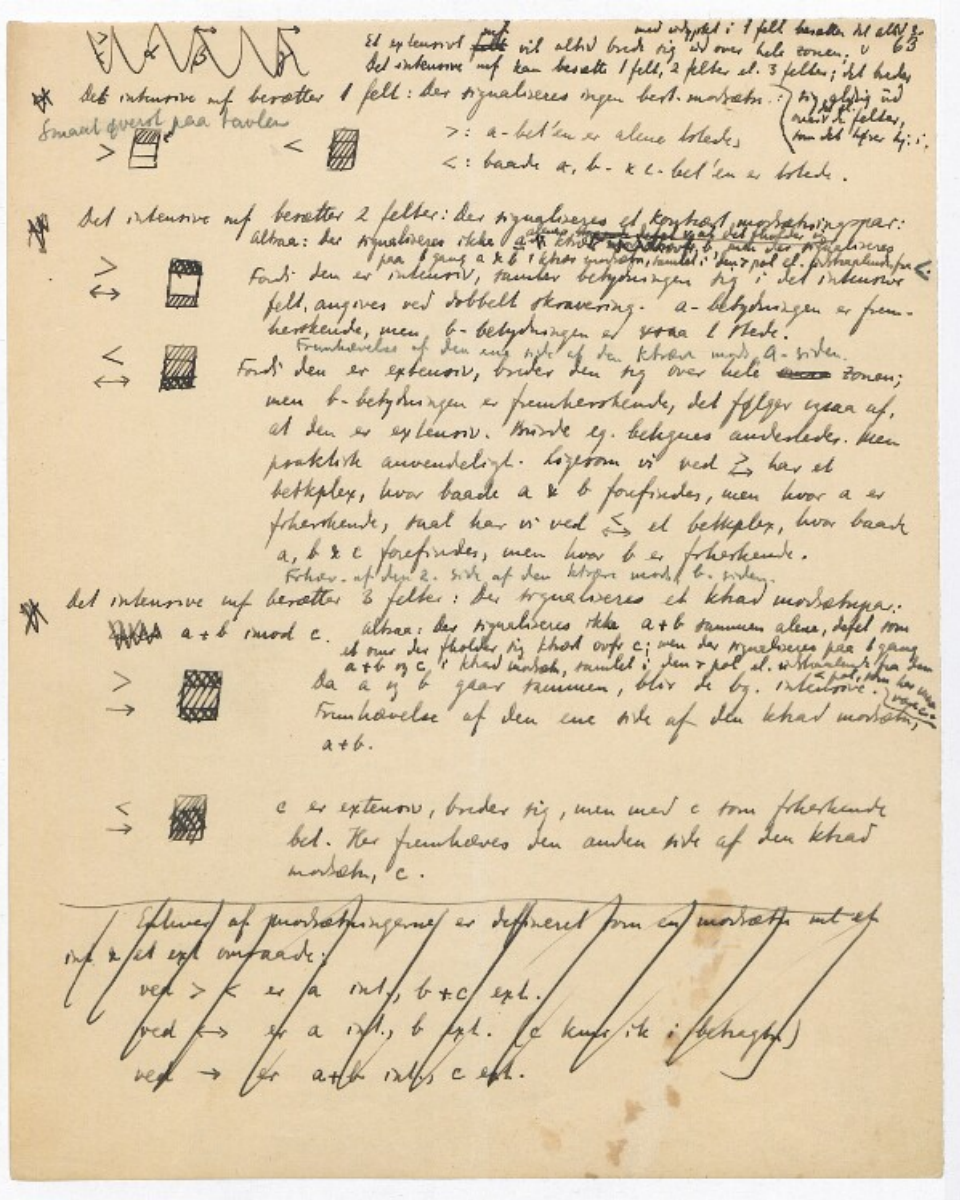 63
Et extensivt mf vil altid brede sig ud over hele zonen,
Det intensive mf kan besætte 1 felt, 2 felter el. 3 felter; det breder
Det intensive mf besætter 1 felt: Der signaliseres ingen best. modsætn.:
sig gldig ud
over de felter,
som det hører hj. i.
Smaat øverst paa tavlen
> < >: a-bet'en er alene tilstede,
<: baade a, b- & c-bet'en er tilstede.
Det intensive mf besætter 2 felter: Der signaliseres et kontrært modsætningspar:
Altsaa: der signaliseres ikke
paa 1 gang a & b i ktrær modsætn, samlet i den ÷ pol el. udstraalende fra <.
>
↔
Fordi den er intensiv, samler betydningen sig i det intensive
felt, angives ved dobbelt skravering. a-betydningen er frem-
herskende, men b-betydningen er ogsaa til stede.
Fremhævelse af den ene side af den ktrære mods, a-siden.
<
↔
Fordi den er extensiv, breder den sig over hele zonen;
men b-betydningen er fremherskende, det følger ogsaa af,
at den er extensiv. Burde eg. betegnes anderledes. Men
praktisk anvendeligt. Ligesom vi ved >↔ har et
betkplex, hvor baade a & b forefindes, men hvor a er
frherskende, saal. har vi ved <↔ et betkplex, hvor baade
a, b & c forefindes, men hvor b er frherskende.
Frhæv. af den 2. side af den ktrære mods, b-siden.
Det intensive mf besætter 3 felter: Der signaliseres et ktrad modsætnpar:
a+b imod c. Altsaa: der signaliseres ikke a+b sammen alene, defst som
et omr der fholder sig ktrært ovfr c; men der signaliseres paa 1 gang
a+b og c, i ktrad modsætn, samlet i den ÷ pol el. udstraalende fra den
>
→
Da a og b gaar sammen, blir de bg. intensive.
Fremhævelse af den ene side af den ktrad modsætn,
a+b.
<
→
c er extensiv, breder sig, men med c som frherskende
bet. Her fremhæves den anden side af den ktrad
modsætn, c.
Enhver af modsætningerne er defineret som en modsætn ml et
int. & et ext omraade:
ved > < er a int., b+c ext.
ved ↔ er a int., b ext. (c kms ik i betragtn)
ved → er a+b int., c ext.